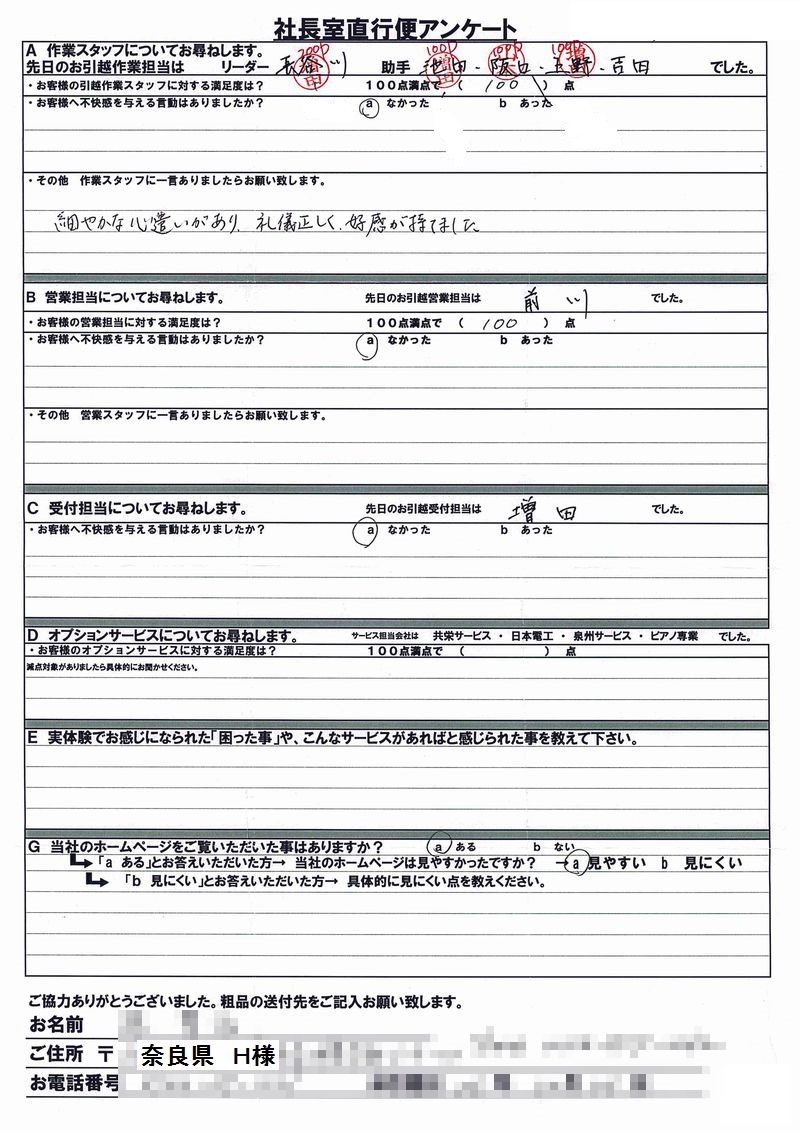 社長室直行便アンケート
A 作業スタッフについてお尋ねします。
先日のお引越作業担当は リーダー 長谷川 助手 池田・阪口・玉野・吉田 でした。
200P 100P 100P 100P
・お客様の引越作業スタッフに対する満足度は? 100点満点で ( 100 ) 点
・お客様へ不快感を与える言動はありましたか? a なかった b あった
・その他 作業スタッフに一言ありましたらお願い致します。
細やかな心遣いがあり、礼儀正しく、好感が持てました
B 営業担当についてお尋ねします。 先日のお引越営業担当は 前川 でした。
・お客様の営業担当に対する満足度は? 100点満点で ( 100 ) 点
・お客様へ不快感を与える言動はありましたか? a なかった b あった
・その他 営業スタッフに一言ありましたらお願い致します。
C 受付担当についてお尋ねします。 先日のお引越受付担当は 増田 でした。
・お客様へ不快感を与える言動はありましたか? a なかった b あった
D オプションサービスについてお尋ねします。 サービス担当会社は 共栄サービス ・ 日本電工 ・ 泉州サービス ・ ピアノ専業 でした。
・お客様のオプションサービスに対する満足度は? 100点満点で ( ) 点
減点対象がありましたら具体的にお聞かせください。
E 実体験でお感じになられた「困った事」や、こんなサービスがあればと感じられた事を教えて下さい。
G 当社のホームページをご覧いただいた事はありますか? a ある b ない
「a ある」とお答えいただいた方→ 当社のホームページは見やすかったですか? →a 見やすい b 見にくい
「b 見にくい」とお答えいただいた方→ 具体的に見にくい点を教えください。
ご協力ありがとうございました。粗品の送付先をご記入お願い致します。
お名前
ご住所 〒 奈良県 H様
お電話番号